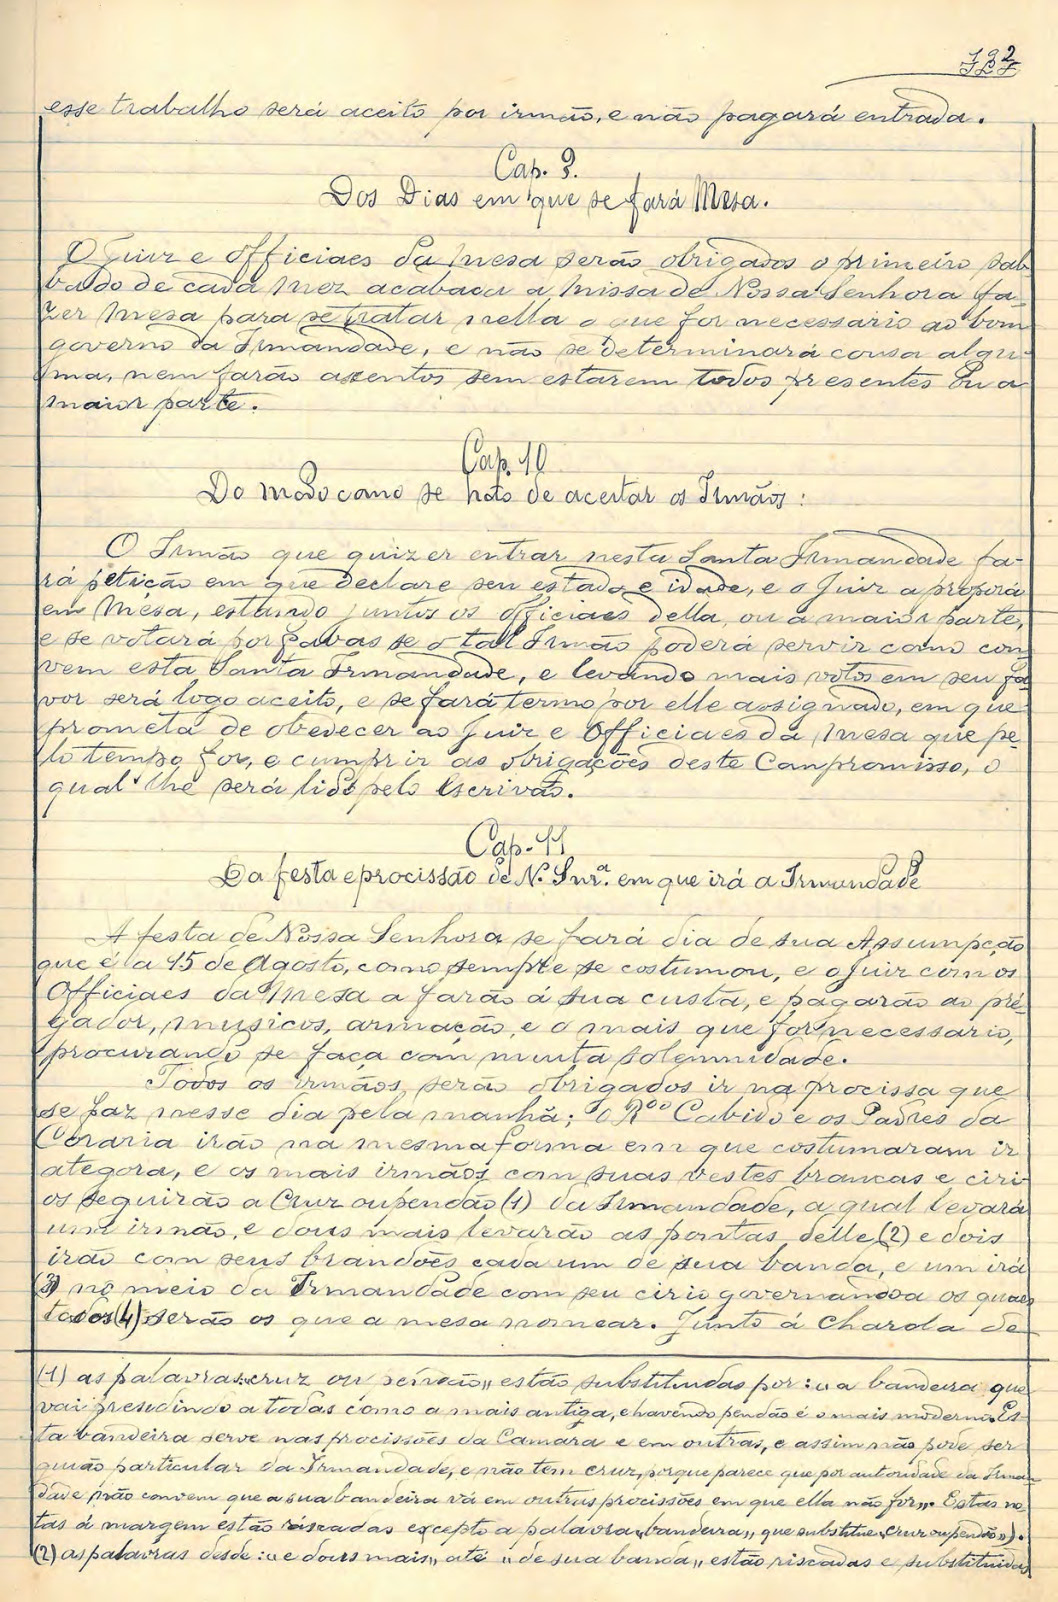 esse trabalho será aceito por irmão, e não pagará entrada.
Cap. 9.
Dos Dias em que se fará Mesa.
O Juiz e Officiaes da Mesa serão obrigados o primeiro sab-
bado de cada mez acabada a Missa de Nossa Senhora fa-
zer Mesa para se tratar nella o que for necessario ao bom
governo da Irmandade, e não se determinará cousa algu-
ma, nem farão assentos sem estarem todos presentes ou a
maior parte.
Cap. 10
Do modo como se de aceitar os Irmãos:
O Irmão que quizer entrar nesta Santa Irmandade fa-
rá petição em que declare seu estado e idade, e o Juiz a proporá
em Mesa, estando juntos os officiaes della, ou a maior parte,
e se votará por favas se o tal Irmão poderá servir como con
vem esta Santa Irmandade, e levando mais votos em seu fa
vor será logo aceito, e se fará termo por elle assignado, em que
prometa de obedecer ao Juiz e Officiaes da Mesa que pe-
lo tempo for, e cumprir as obrigações deste Compromisso, o
qual lhe será lido pelo Escrivão.
Cap. 11
Da festa e procissão de N.ª Snr.ª em que irá a Irmandade
A festa de Nossa Senhora se fará dia de sua Assumpção
que é a 15 de Agosto, como sempre se costumou, e o Juiz com os
Officiaes da Mesa a farão á sua custa, e pagarão ao pré-
gador, musicos, armação, e o mais que for necessario,
procurando se faça com muita solemnidade.
Todos os irmãos serão obrigados ir na procissa que
se faz nesse dia pela manhã; o R.do Cabido e os Padres da
Coraria irão na mesma forma em que costumaram ir
ategora, e os mais irmãos com suas vestes brancas e ciri-
os seguirão a Cruz ou pendão (1) da Irmandade, a qual levará
um irmão, e dous mais levarão as pontas delle (2) e dois
irão com seus brandões cada um de sua banda, e um irá
(3) no meio da Irmandade com seu cirio governando a os quaes
todos (4) serão os que a mesa nomear. Junto á Charola de
(1) as palavras: cruz ou pendão,, estão substituidas por: "a bandeira que
vai presidindo a todas como a mais antiga, e havendo pendão é o mais moderno. Es-
ta bandeira serve nas procissões da Camara e em outras, e assim não pode ser
guião particular da Irmandade, e não tem cruz, porque parece que por autoridade da Irman-
dade não convem que a sua bandeira vá em outras procissões em que ella não for,,. Estas no-
tas á margem estão riscadas excepto a palavra "bandeira,, que substitue "Cruz ou pendão").
(2) as palavras desde: "e dous mais,, até "de sua banda,, estão riscadas e substituidas